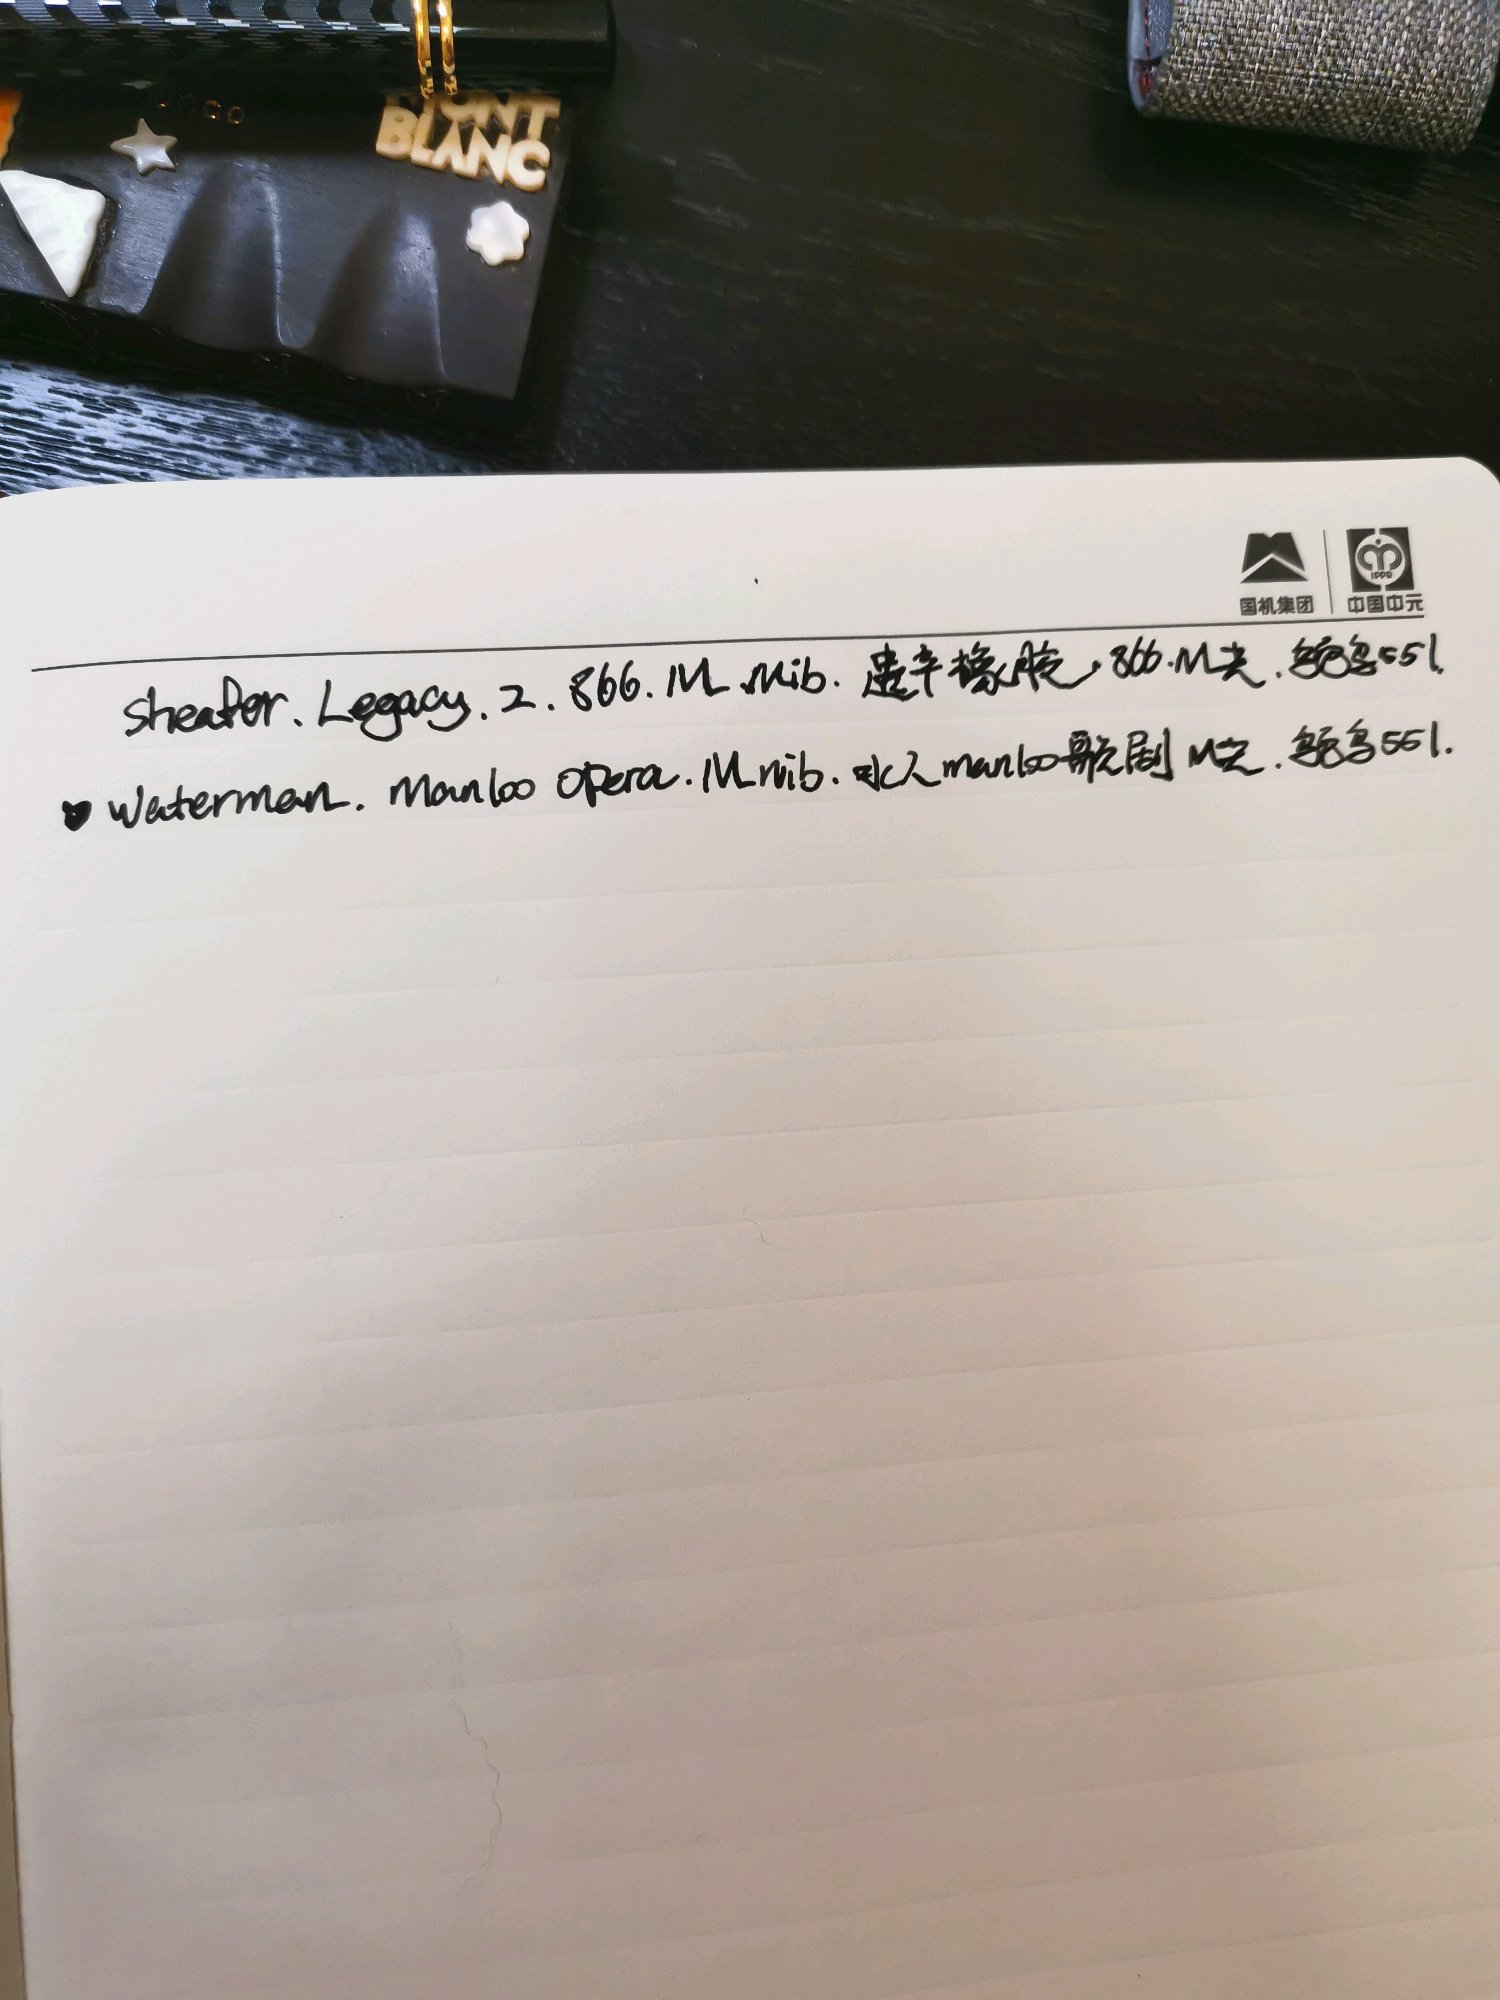 MONT
BLANC
国机集团
IPPR
中国中元
Sheafer. Legacy. 2. 866. M nib. 遗产橡胶, 866. M尖. 鸵鸟551.
Waterman. Man100 Opera. M nib. 水人man100歌剧 M尖. 鸵鸟551.